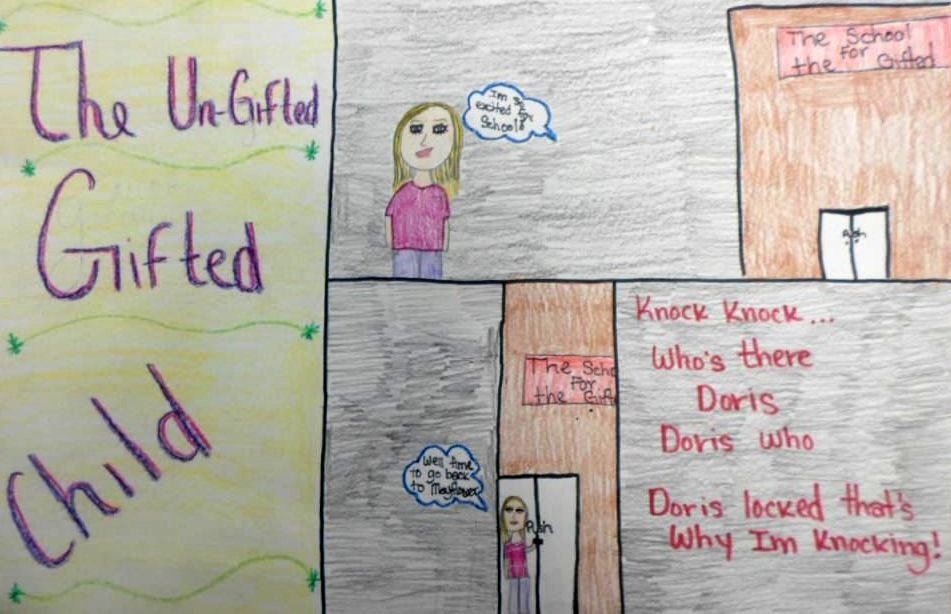 The Un-Gifted
Gifted
Child
Im so
excited for
School!
The School
For
the Gifted
Push
The Scho
For
the Gift
Well time
to go back
to Mayflower
Push
Knock Knock...
Who's there
Doris
Doris who
Doris locked that's
Why Im Knocking!